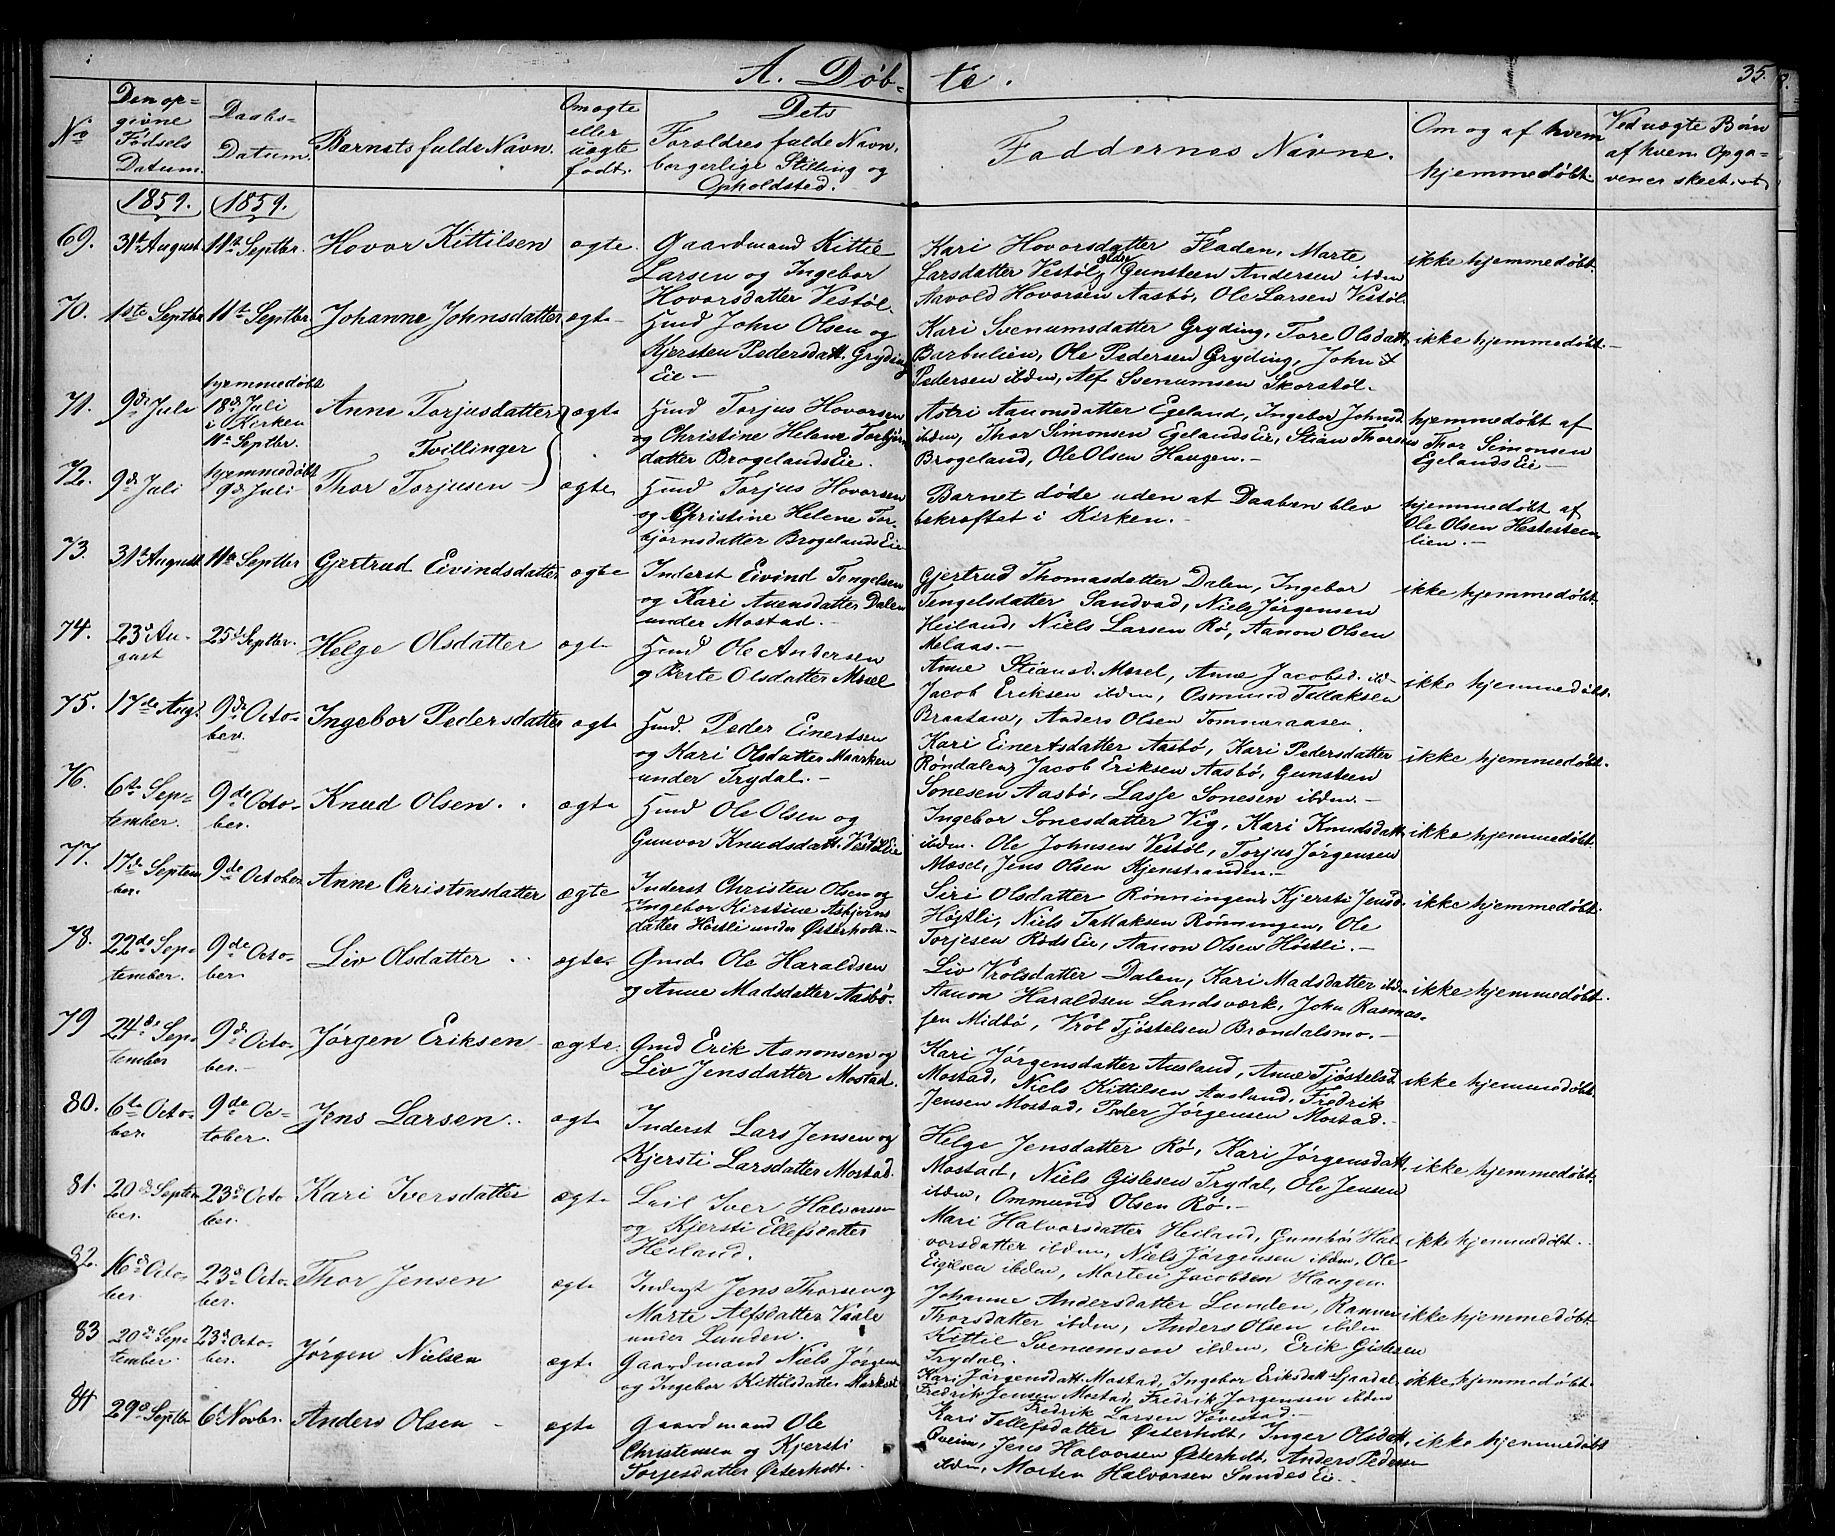 A. Døb-te.
35.
No
Den op-
givne
Fødsels
Datum.
Daabs-
Datum.
Barnets fulde Navn.
Om ægte
eller
uægte
født.
Dets
Forældres fulde Navn,
borgerlige Stilling og
Opholdsted.
Faddernes Navne.
Om og af hvem
hjemmedøbt.
Ved uægte Børn
af hvem Opga-
vener skeet
1859. 1859.
69. 31te August 11te Septbr. Hovor Kittilsen ægte.
Gaardmand Kittil
Larsen og Ingebor
Hovorsdatter Vestøl.
Kari Hovorsdatter Fladen, Marte
Larsdatter Vestøl, Gunsteen Andersen ibdm
Aavold Hovorsen Aasbø, Ole Larsen Vestøl
ikke hjemmedøbt.
70. 1ste Septbr 11te Septbr. Johanne Johnsdatter ægte
Husmd John Olsen og
Kjersten Pedersdatt. Gryding
Eie -
Kari Svenumsdatter Gryding, Tore Olsdatt
Barbulien, Ole Pedersen Gryding, John
Pedersen ibdm, Alf Svenumsen Skorstøl.
ikke hjemmedøbt.
71. 9de Juli
hjemmedøbt
18de Juli
i Kirken
11te Septbr.
Anne Torjusdatter ægte
Tvillinger
Husmd Torjus Hovorsen
og Christine Helene Torbjørns
datter Brogelands Eie.
Astri Aanonsdatter Egeland, Ingebor Johnsd
ibdm, Thor Simonsen Egelands Eie, Stian Thorsen
Brogeland, Ole Olsen Haugen. -
hjemmedøbt af
Thor Simonsen
Egelands Eie -
72. 9de Juli
hjemmedøbt
9de Juli -
Thor Torjusen - ægte
Husmd Torjus Hovorsen
og Christine Helene Tor-
bjørnsdatter Brogelands Eie
Barnet døde uden at Daaben blev
bekræftet i Kirken. -
hjemmedøbt af
Ole Olsen Hestesteen
lien. -
73. 31te August 11te Septbr Gjertrud Eivindsdatter ægte
Inderst Eivind Tengelsen
og Kari Auensdatter Dalen
under Mostad. -
Gjertrud Thomasdatter Dalen, Ingebor
Tengelsdatter Sandvad, Niels Jørgensen
Heiland, Niels Larsen Rø, Aanon Olsen
Melaas. -
ikke hjemmedøbt.
74. 23de Au-
gust
25de Septbr. Helge Olsdatter ægte
Husmd Ole Andersen
og Berte Olsdatter Mosel
Anne Stiansd. Mosel, Anne Jacobsd. ibd
Jacob Eriksen ibdm, Osmund Tallaksen
Braatane, Anders Olsen Tommeraasen
ikke hjemmedøbt.
75. 17de Aug. 9de Octo-
ber.
Ingebor Pedersdatter ægte
Husmd. Peder Einertsen
og Kari Olsdatter Maarken
under Trydal. -
Kari Einertsdatter Aasbø, Kari Pedersdatter
Røndalen, Jacob Eriksen Aasbø, Gunsteen
Sonesen Aasbø, Lasse Sonesen ibdm. -
ikke hjemmedøbt.
76. 6te Sep-
tember.
9de Octo-
ber.
Knud Olsen. ægte
Husmd Ole Olsen og
Gunvor Knudsdatt. Vestøls Eie
Ingebor Sonesdatter Vig, Kari Knudsdatt
ibdm. Ole Johnsen Vestøl, Torjus Jørgensen
Mosel, Jens Olsen Kjenstranden. -
ikke hjemmedøbt.
77. 17de Septem
ber.
9de October. Anne Christensdatter ægte
Inderst Christen Olsen og
Ingebor Kirstine Asbjørns
datter Høstli under Østerholt. -
Siri Olsdatter Rønningen, Kjersti Jensd.
Høstli, Niels Tallaksen Rønningen, Ole
Torjesen Røds Eie, Aanon Olsen Høstli. -
ikke hjemmedøbt.
78. 22de Sep-
tember.
9de Octo-
ber.
Liv Olsdatter ægte.
Gmd. Ole Haraldsen
og Anne Madsdatter Aasbø.
Liv Vrolsdatter Dalen, Kari Madsdatter ibdm
Aanon Haraldsen Landsværk, John Rasmus-
sen Midbø, Vrol Tjøstelsen Brændalsmo. -
ikke hjemmedøbt.
79 24de Sep-
tember
9de Octo-
ber. -
Jørgen Eriksen - ægte.
Gmd Erik Aanonsen og
Liv Jensdatter Mostad.
Kari Jørgensdatter Ausland, Anne Tjøstelsd
Mostad, Niels Kittilsen Ausland, Fredrik
Jensen Mostad, Peder Jørgensen Mostad. -
ikke hjemmedøbt.
80. 6te Octo-
ber.
9de Oc-
tober.
Jens Larsen. ægte
Inderst Lars Jensen og
Kjersti Larsdatter Mostad.
Helge Jensdatter Rø, Kari Jørgensdatt.
Mostad, Niels Gislesen Trydal, Ole Jensen
ibdm, Ommund Olsen Rø. -
ikke hjemmedøbt.
81. 20de Septem
ber.
23de Octo
ber.
Kari Iversdatter ægte
Leil Iver Halvorsen
og Kjersti Ellefsdatter
Heiland.
Mari Halvorsdatter Heiland, Gunbør Hal-
vorsdatter ibdm, Niels Jørgensen ibdm, Ole
Eigilsen ibdm, Morten Jacobsen Haugen
ikke hjemmedøbt.
82. 16de Octo-
ber.
23de Octo-
ber.
Thor Jensen ægte
Jens Thorsen og
Marte Alfsdatter Vaale
under Lunden.
Johanne Andersdatter Lunden, Rannei
Thorsdatter ibdm, Anders Olsen ibdm
Kittil Svenumsen ibdm, Erik Gislesen
Trydal.
ikke hjemmedøbt.
83 20de Sep-
tember.
23de Octo-
ber.
Jørgen Nielsen ægte
Gaardmand Niels Jørgens
og Ingebor Kittilsdatter
Kari Jørgensdatt. Mostad, Ingebor Eriksdatt.
Fredrik Jensen Mostad, Fredrik Jørgensen ibdm
Fredrik Larsen Vævestad. -
ikke hjemmedøbt.
84 29de Septbr 6te Novbr. Anders Olsen - ægte
Gaardmand Ole
Christensen og Kjersti
Torjesdatter Østerholt. -
Kari Tellefsdatter Østerholt, Inger Olsdatt.
Øveim, Jens Halvorsen Østerholt, Anders Pedersen
ibdm, Morten Halvorsen Sundes Eie. -
ikke hjemmedøbt